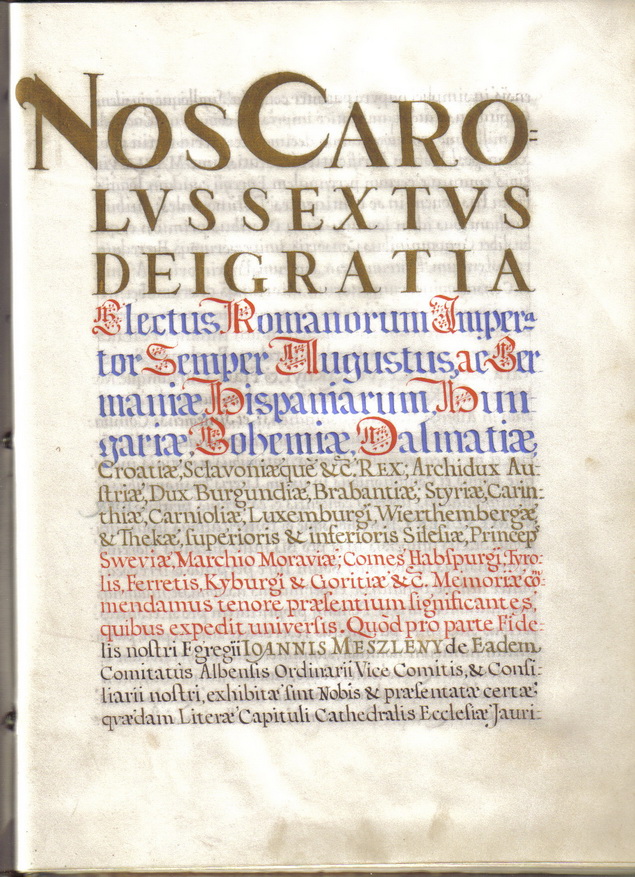 NOS CARO=
LVS SEXTVS
DEI GRATIA
Electus Romanorum Impera=
tor Semper Augustus, ac Ger
maniæ Hispaniarum Hun
gariæ, Bohemiæ, Dalmatiæ,
Croatiæ, Sclavoniæquè &c̃. REX; Archidux Au=
striæ, Dux Burgundiæ, Brabantiæ; Styriæ, Carin=
thiæ, Carnioliæ, Luxemburgi, Wierthembergæ
& Thekæ, superioris & inferioris Silesiæ, Princeps
Sweviæ, Marchio Moraviæ; Comes Habspurgi, Tyro=
lis, Ferretis, Kyburgi & Goritiæ &c̃. Memoriæ cõ=
mendamus tenore præsentium significantes,
quibus expedit universis. Quòd pro parte Fide=
lis nostri Egregii IOANNIS MESZLENY de Eadem
Comitatùs Albensis Ordinarii Vice Comitis, & Consi=
liarii nostri, exhibitæ sint Nobis & præsentatæ certæ
quædam Literæ Capituli Cathedralis Ecclesiæ Jauri=